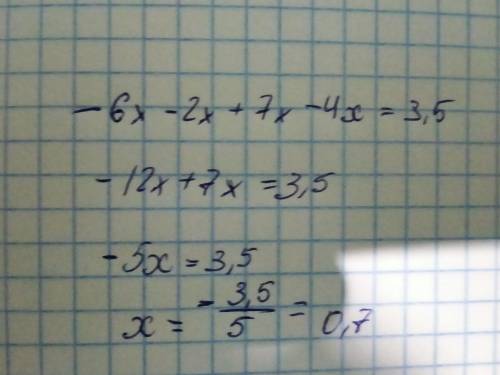 - 6x - 2x + 7x - 4x = 3,5
- 12x + 7x = 3,5
- 5x = 3,5
x = - 3,5/5 = 0,7